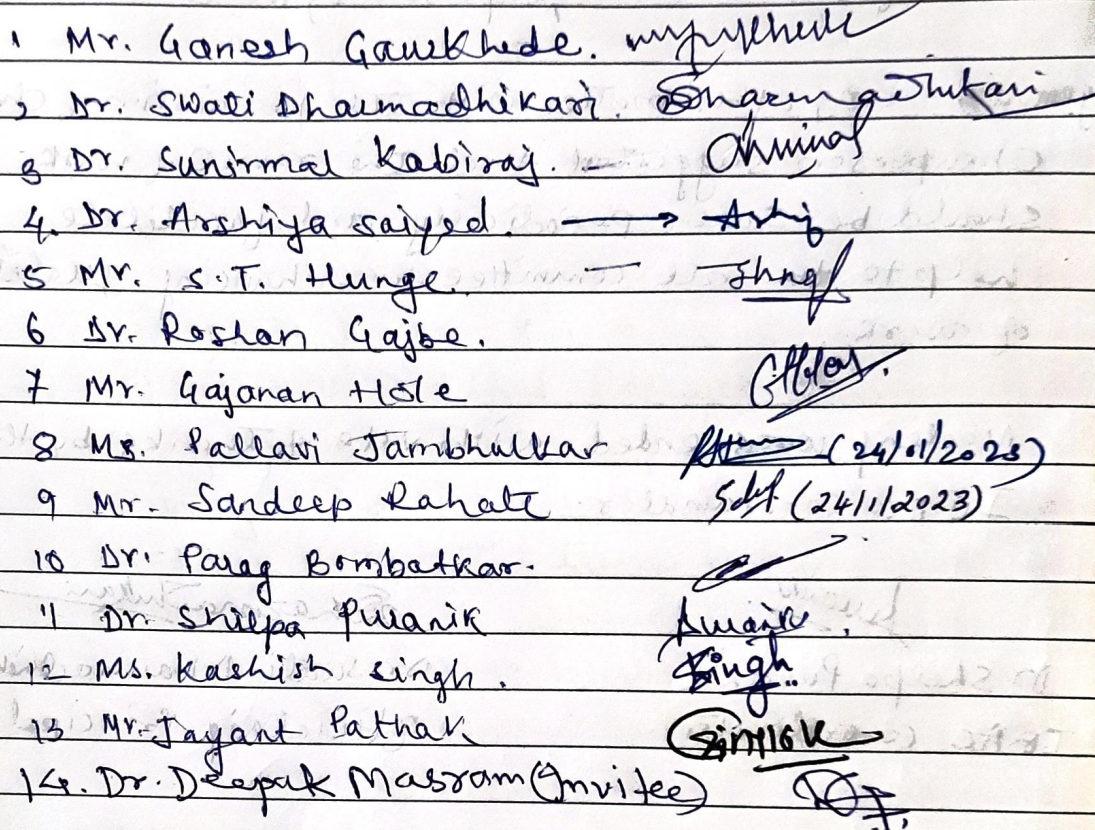 1 Mr. Ganesh Gawkhede.
2 Dr. Swati Dharmadhikari. Dharmadhikari
3 Dr. Sunirmal Kabiraj. –
4. Dr. Arshiya saiyed. → Arshi
5 Mr. S.T. Hunge. –
6 Dr. Roshan Gajbe.
7 Mr. Gajanan Hole GHole.
8 Ms. Pallavi Jambhulkar (24/01/2023)
9 Mr. Sandeep Rahate (24/1/2023)
10 Dr. Parag Bombatkar.
11 Dr. Shilpa Puranik Puranik.
12 Ms. Kashish Singh. Singh..
13 Mr. Jayant Pathak
14. Dr. Deepak Masram (Invitee)